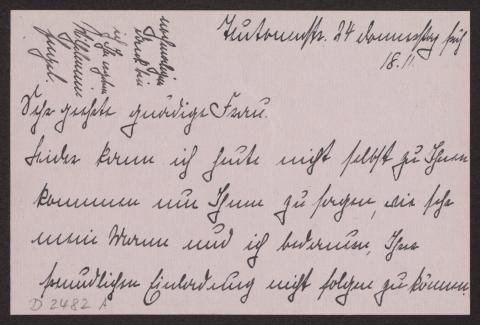 Teutonenstr. 24 donnerstag früh
18. II.
Sehr geehrte gnädige Frau.
Leider kann ich heute nicht selbst zu Ihnen
kommen um Ihnen zu sagen, wie sehr
mein Mann und ich bedauern, Ihrer
freundlichen Einladung nicht folgen zu können.
D 2482 A
nochmaligem
Dank bin
ich Ihre ergebene